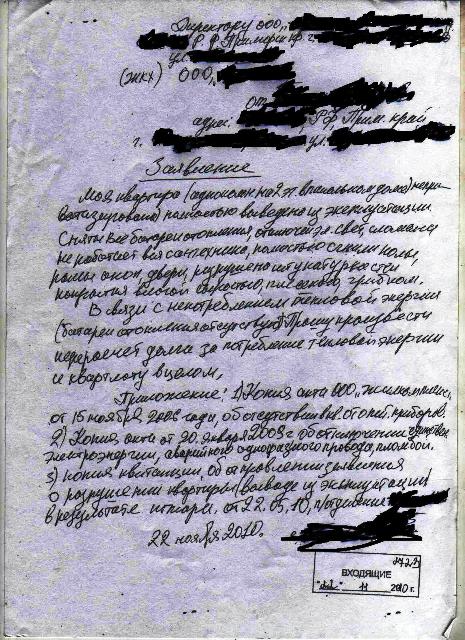 Директору ООО„
Р.Ф. Приморский кр. г.
ул.
(ЖКХ) ООО„
от
адрес: РФ, Прим. край
г. ул.
Заявление
Моя квартира на 2 эт. в панельном доме)
полностью выведена из эксплуатации
Сняты все батареи отопления отключен эл. свет, сломана
не работает вся сантехника, полностью сгнили полы,
рамы окон, двери, разрушено штукатурка стен
покрылся влагой сыростью, плесенью, грибком.
В связи с непотреблением тепловой энергии
(батареи отопления отсутствуют) Прошу произвести
перерасчет долга за потребление тепловой энергии
и квартплату в целом,
Приложение: 1) Копия акта ООО„
от 15 ноября 2008 года, об отсутствии отоп. приборов.
2) Копия акта от 20 января 2009 г об отключении
электроэнергии, аварийного однофазного провода,
3) копия квитанции, об отправлении заявления
о разрушении квартиры (выводе из эксплуатации)
в результате от 22.05.10,
22 ноября 2010.
1722
ВХОДЯЩИЕ
"22" 11 2010 г.